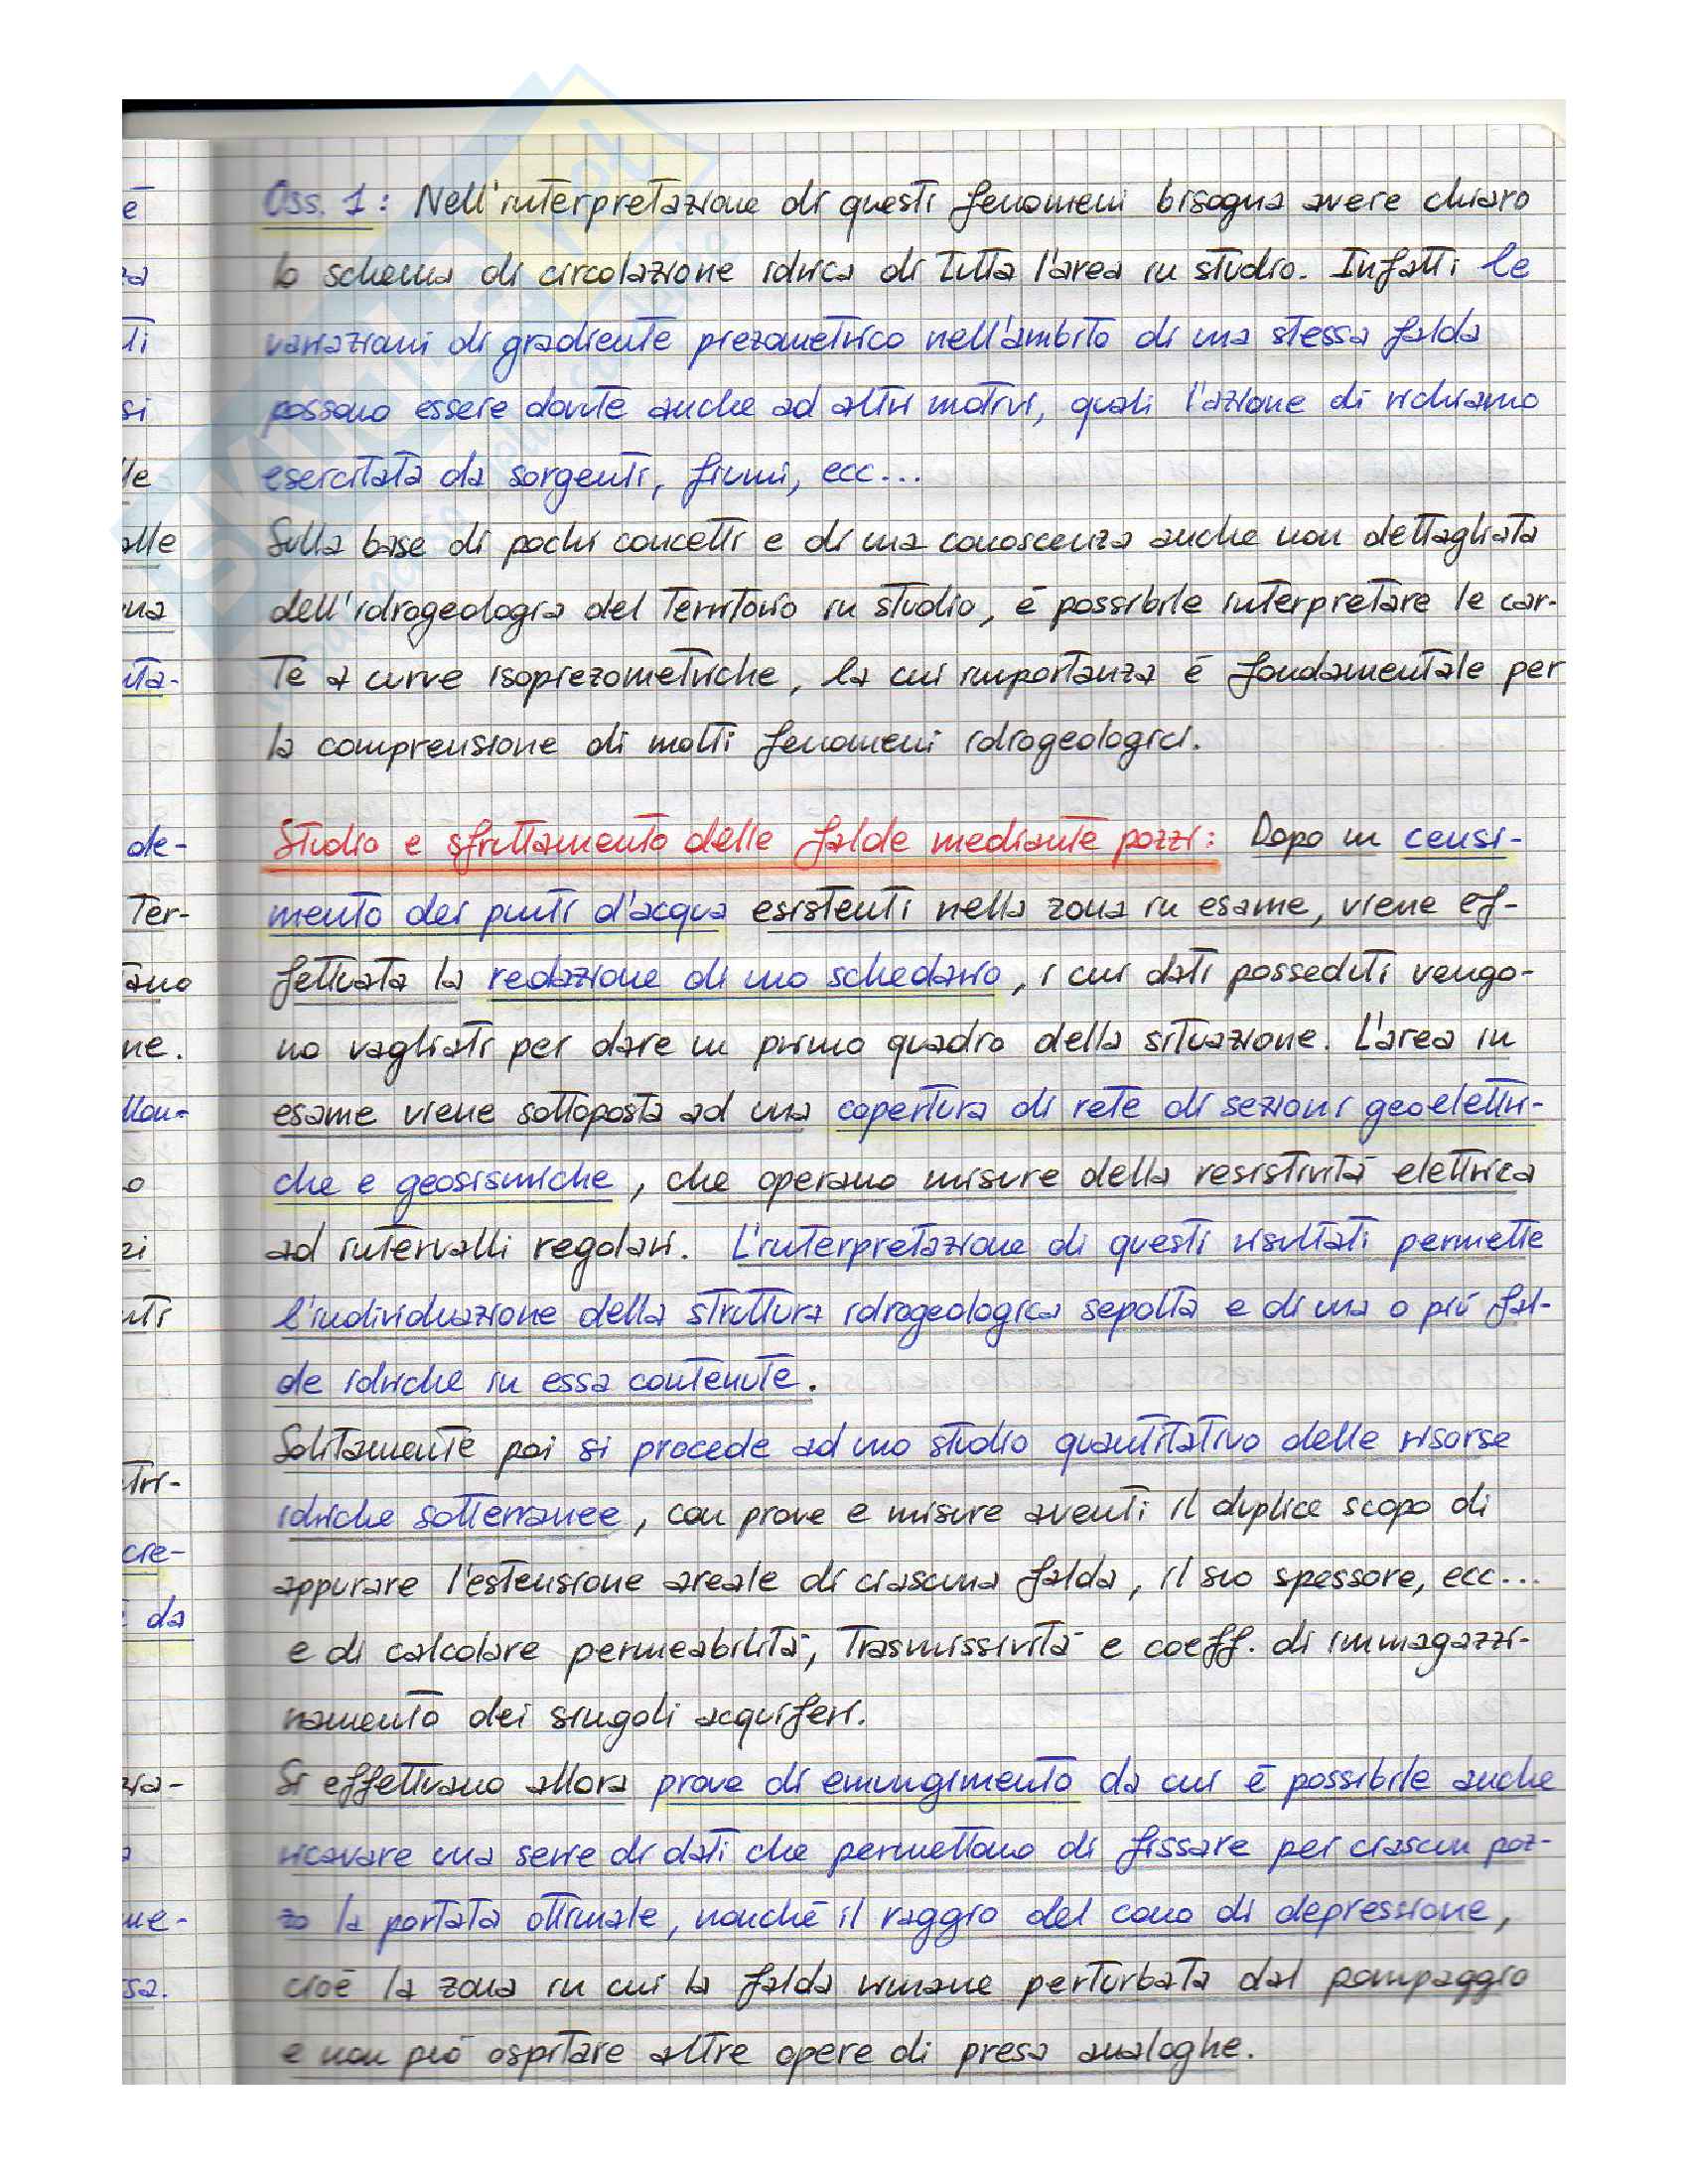 Oss. 1: Nell'interpretazione di questi fenomeni bisogna avere chiaro
lo schema di circolazione idrica di tutta l'area in studio. Infatti le
variazioni di gradiente piezometrico nell'ambito di una stessa falda
possono essere dovute anche ad altri motivi, quali l'azione di richiamo
esercitata da sorgenti, fiumi, ecc...
Sulla base di pochi concetti e di una conoscenza anche non dettagliata
dell'idrogeologia del territorio in studio, è possibile interpretare le car-
te a curve isopiezometriche, la cui importanza è fondamentale per
la comprensione di molti fenomeni idrogeologici.
Studio e sfruttamento delle falde mediante pozzi: Dopo un censi-
mento dei punti d'acqua esistenti nella zona in esame, viene ef-
fettuata la redazione di uno schedario, i cui dati posseduti vengo-
no vagliati per dare un primo quadro della situazione. L'area in
esame viene sottoposta ad una copertura di rete di sezioni geoelettri-
che e geosismiche, che operano misure della resistività elettrica
ad intervalli regolari. L'interpretazione di questi risultati permette
l'individuazione della struttura idrogeologica sepolta e di una o più fal-
de idriche in essa contenute.
Solitamente poi si procede ad uno studio quantitativo delle risorse
idriche sotterranee, con prove e misure aventi il duplice scopo di
appurare l'estensione areale di ciascuna falda, il suo spessore, ecc...
e di calcolare permeabilità, trasmissività e coeff. di immagazzi-
namento dei singoli acquiferi.
Si effettuano allora prove di emungimento da cui è possibile anche
ricavare una serie di dati che permettono di fissare per ciascun poz-
zo la portata ottimale, nonché il raggio del cono di depressione,
cioè la zona in cui la falda rimane perturbata dal pompaggio
e non può ospitare altre opere di presa analoghe.
è
za
ti
si
le
alle
una
nta-
de-
ter-
ano
ne.
llon-
o
zi
nti
tri-
cre-
è da
zia-
a
me-
sa.